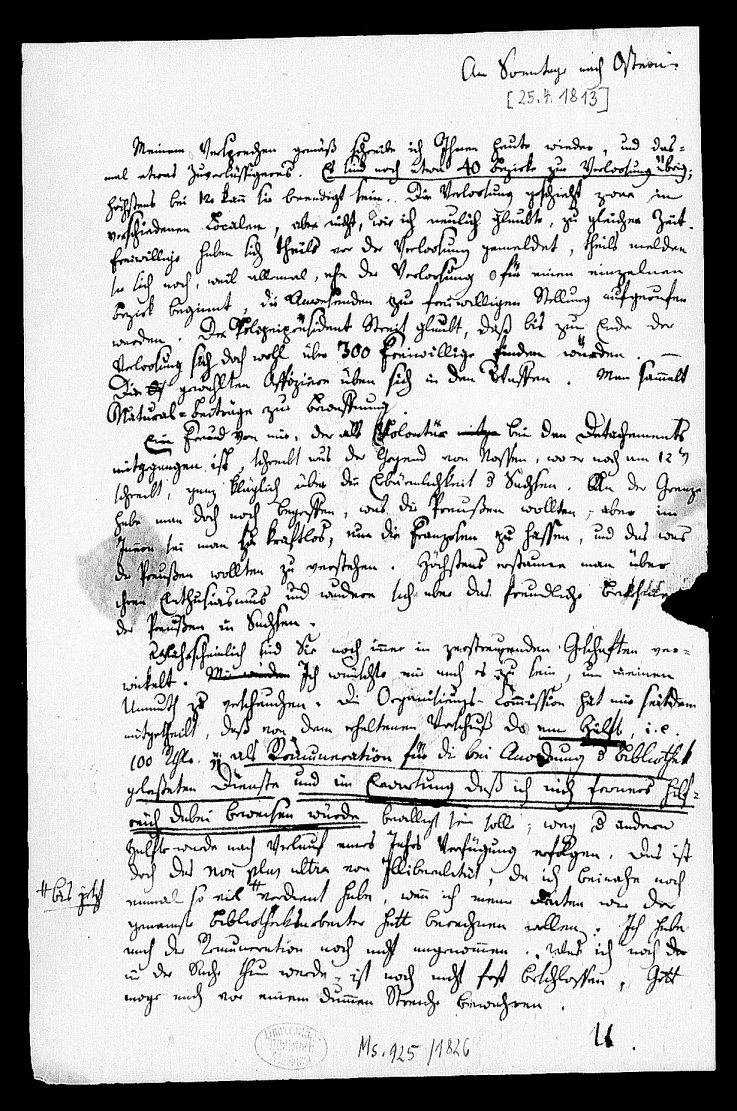 Am Sonntage nach Ostern.
[25.4.1813]
Meinem Versprechen gemäß schreibe ich Ihnen heute wieder, und das-
mal etwas Zuverlässigeres. Es sind noch etwa 40 Bezirke zur Verloosung übrig;
höchstens bei 12 kann sie beendigt sein. Die Verloosung geschieht zwar in
verschiedenen Localen, aber nicht, wie ich neulich glaubte, zu gleicher Zeit.
Freiwillige haben sich theils vor der Verloosung gemeldet, theils melden
sie sich noch, weil allemal, ehe die Verloosung für einen einzelnen
Bezirk beginnt, die Anwesenden zur freiwilligen Stellung aufgerufen
werden. Der Polizeipräsident Streit glaubt, daß bis zum Ende der
Verloosung sich doch wohl über 300 Freiwillige finden würden. —
Die gewählten Offiziere üben sich in den Waffen. Man sammelt
Natural-beiträge zur Bewaffnung.
Ein Freund von mir, der als Volontär bei den Detachements
mitgegangen ist, schreibt aus der Gegend von Nossen, wo er noch am 12
schreibt, ganz kläglich über die Erbärmlichkeit d Sachsen. An der Grenze
habe man doch noch begriffen, was die Preußen wollten; aber im
Innern sei man zu kraftlos, um die Franzosen zu hassen, und das was
die Preußen wollten zu verstehen. Höchstens erstaune man über
ihren Enthusiasmus und wundere sich über das freundliche
der Preußen in Sachsen.
Wahrscheinlich sind Sie noch immer in zerstreuenden Geschäften ver-
wickelt. Ich wünschte nur auch es zu sein, um meinen
Unmuth zu verscheuchen. Die Organisirungs-Commission hat mir seitdem
mitgetheilt, daß von dem erhaltenen Vorschuß die eine Hälfte, i.e.
100 Rthlr. als Remuneration für die bei Anordnung d Bibliothek
geleisteten Dienste und in Erwartung daß ich mich ferner hilf-
reich dabei beweisen würde bewilligt sein soll; weg d andern
Hälfte werde nach Verlauf eines Jahrs Verfügung erfolgen. Das ist
doch das non plus ultra von Illiberalität, da ich beinahe noch
einmal so viel # verdient habe, wenn ich meine Arbeiten wie der
gemeinste Bibliotheksarbeiter hätte berechnen wollen. Ich habe
auch die Remuneration noch nicht angenommen. Was ich noch
in der Sache thun werde, ist noch nicht fest beschlossen. Gott
möge mich vor einem dummen Streiche bewahren.
# bis jetzt
Ms. 925/1826